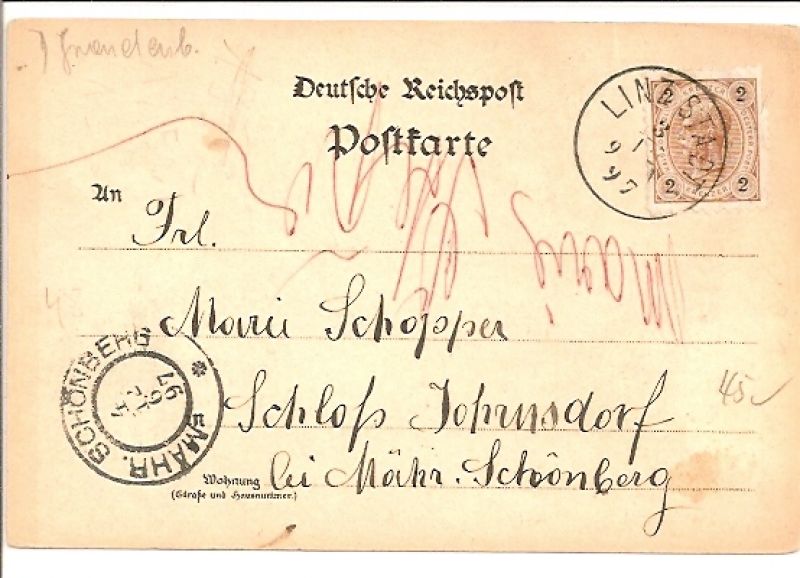 Deutsche Reichspost
Postkarte
LINZ STADT
3
9
97
2 2
2 2
An
Frl.
Marie Schopper
Schloß Johrnsdorf
Wohnung bei Mähr. Schönberg
(Straße und Hausnummer.)
MÄHR. SCHÖNBERG
97
45